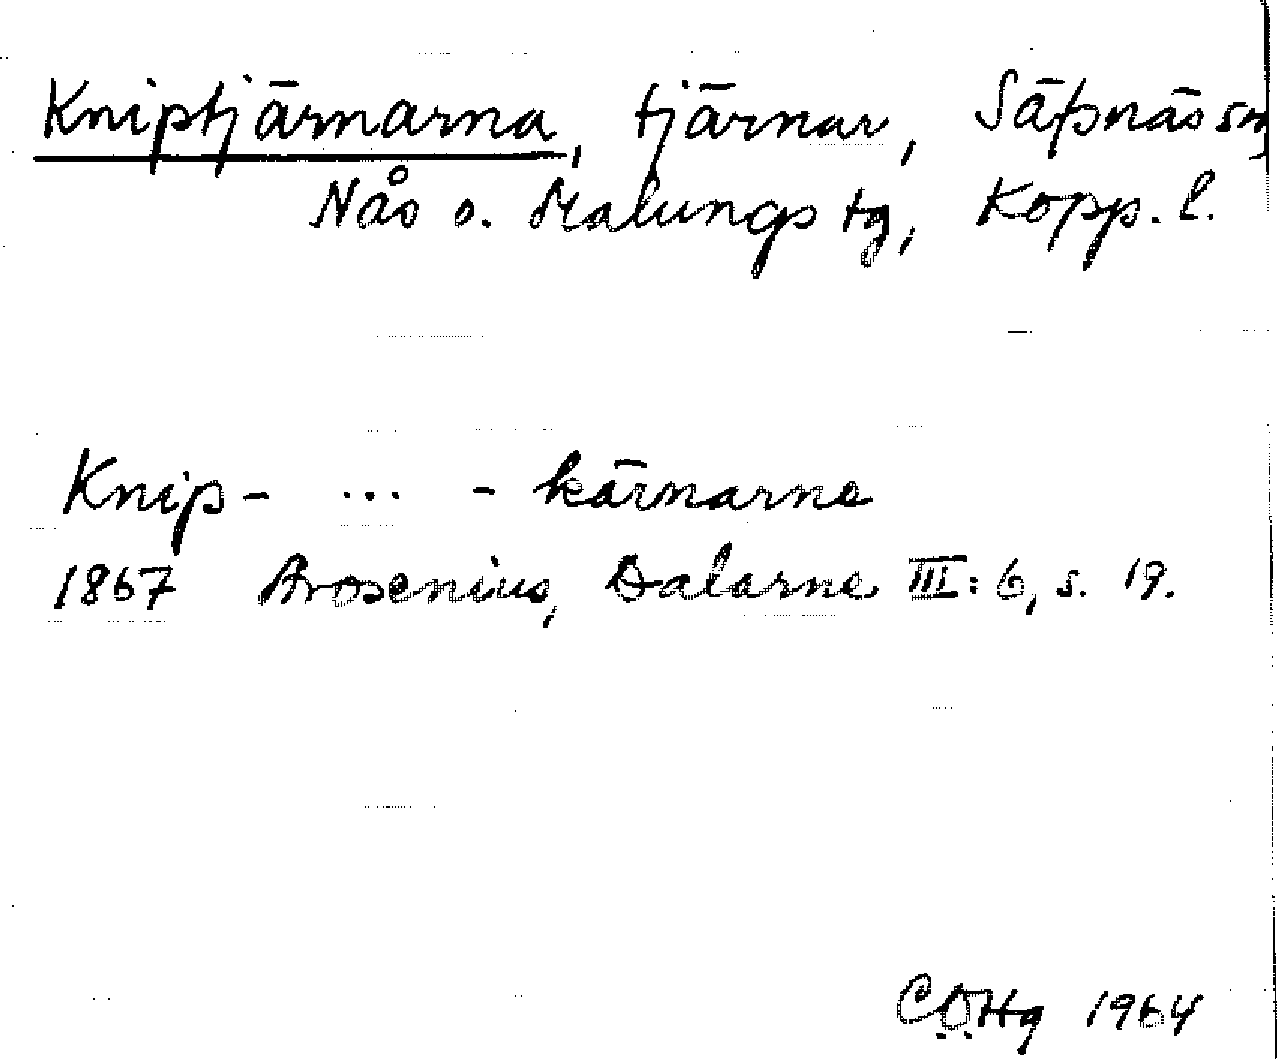 Kniptjärnarna, tjärnar, Säfsnäs sn
Nås o. Malungs tg, Kopp. l.
Knip- ... -kärnarne
1867 Brosenius, Dalarne III: 6, s. 19.
CÖHg 1964